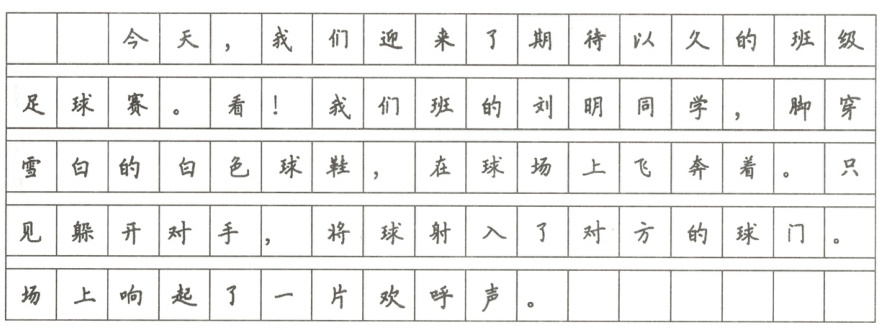 今天，我们迎来了期待以久的班级
足球赛。看！我们班的刘明同学，脚穿
雪白的白色球鞋，在球场上飞奔着。只
见躲开对手，将球射入了对方的球门。
场上响起了一片欢呼声。